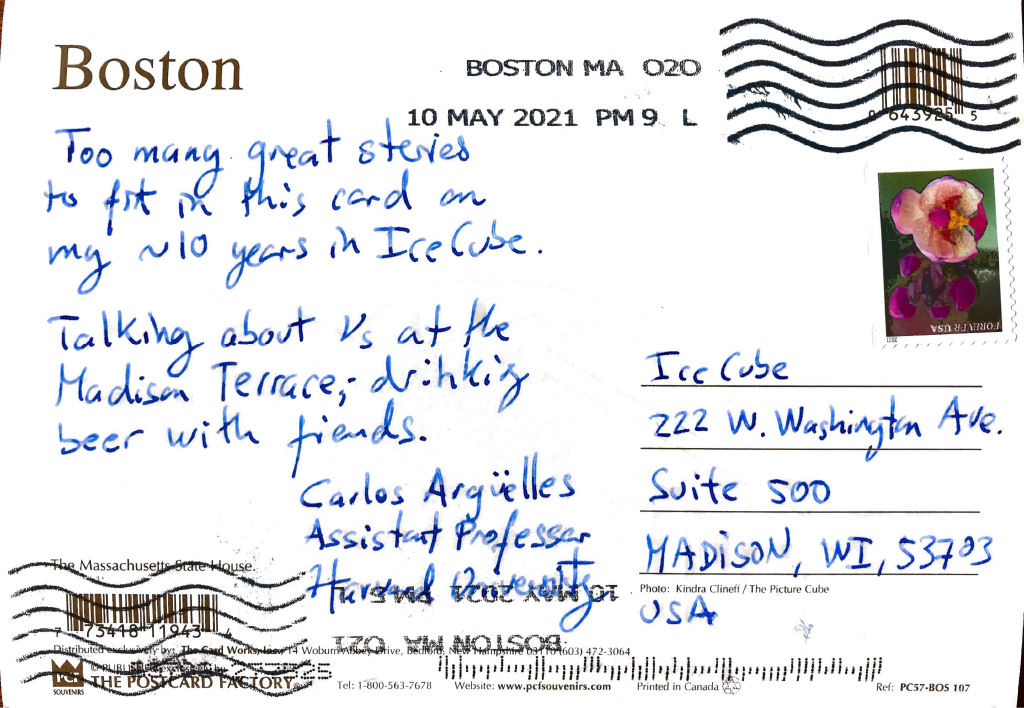 Boston
BOSTON MA 020
10 MAY 2021 PM 9 L
0 643925 5
Too many great stories
to fit in this card on
my ~10 years in IceCube.
Talking about νs at the
Madison Terrace; drinking
beer with friends.
Carlos Argüelles
Assistant Professor
Harvard University
FOREVER USA
2021
IceCube
222 W. Washington Ave.
Suite 500
MADISON, WI, 53703
USA
The Massachusetts State House.
7 73418 11943 4
10 MAY 2021 PM 5 L
BOSTON MA 021
Distributed exclusively by: The Card Works, Inc., 14 Woburn Abbey Drive, Bedford, New Hampshire 03110 (603) 472-3064
PCF
SOUVENIRS
THE POSTCARD FACTORY
Tel: 1-800-563-7678 Website: www.pcfsouvenirs.com Printed in Canada
Photo: Kindra Clineff / The Picture Cube
Ref: PC57-BOS 107